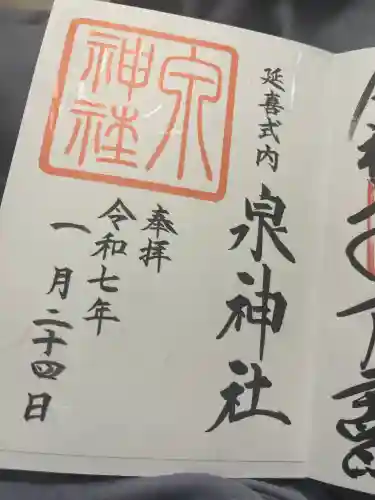 延喜式内
泉神社
奉拝
令和七年
一月二十四日
泉
神社